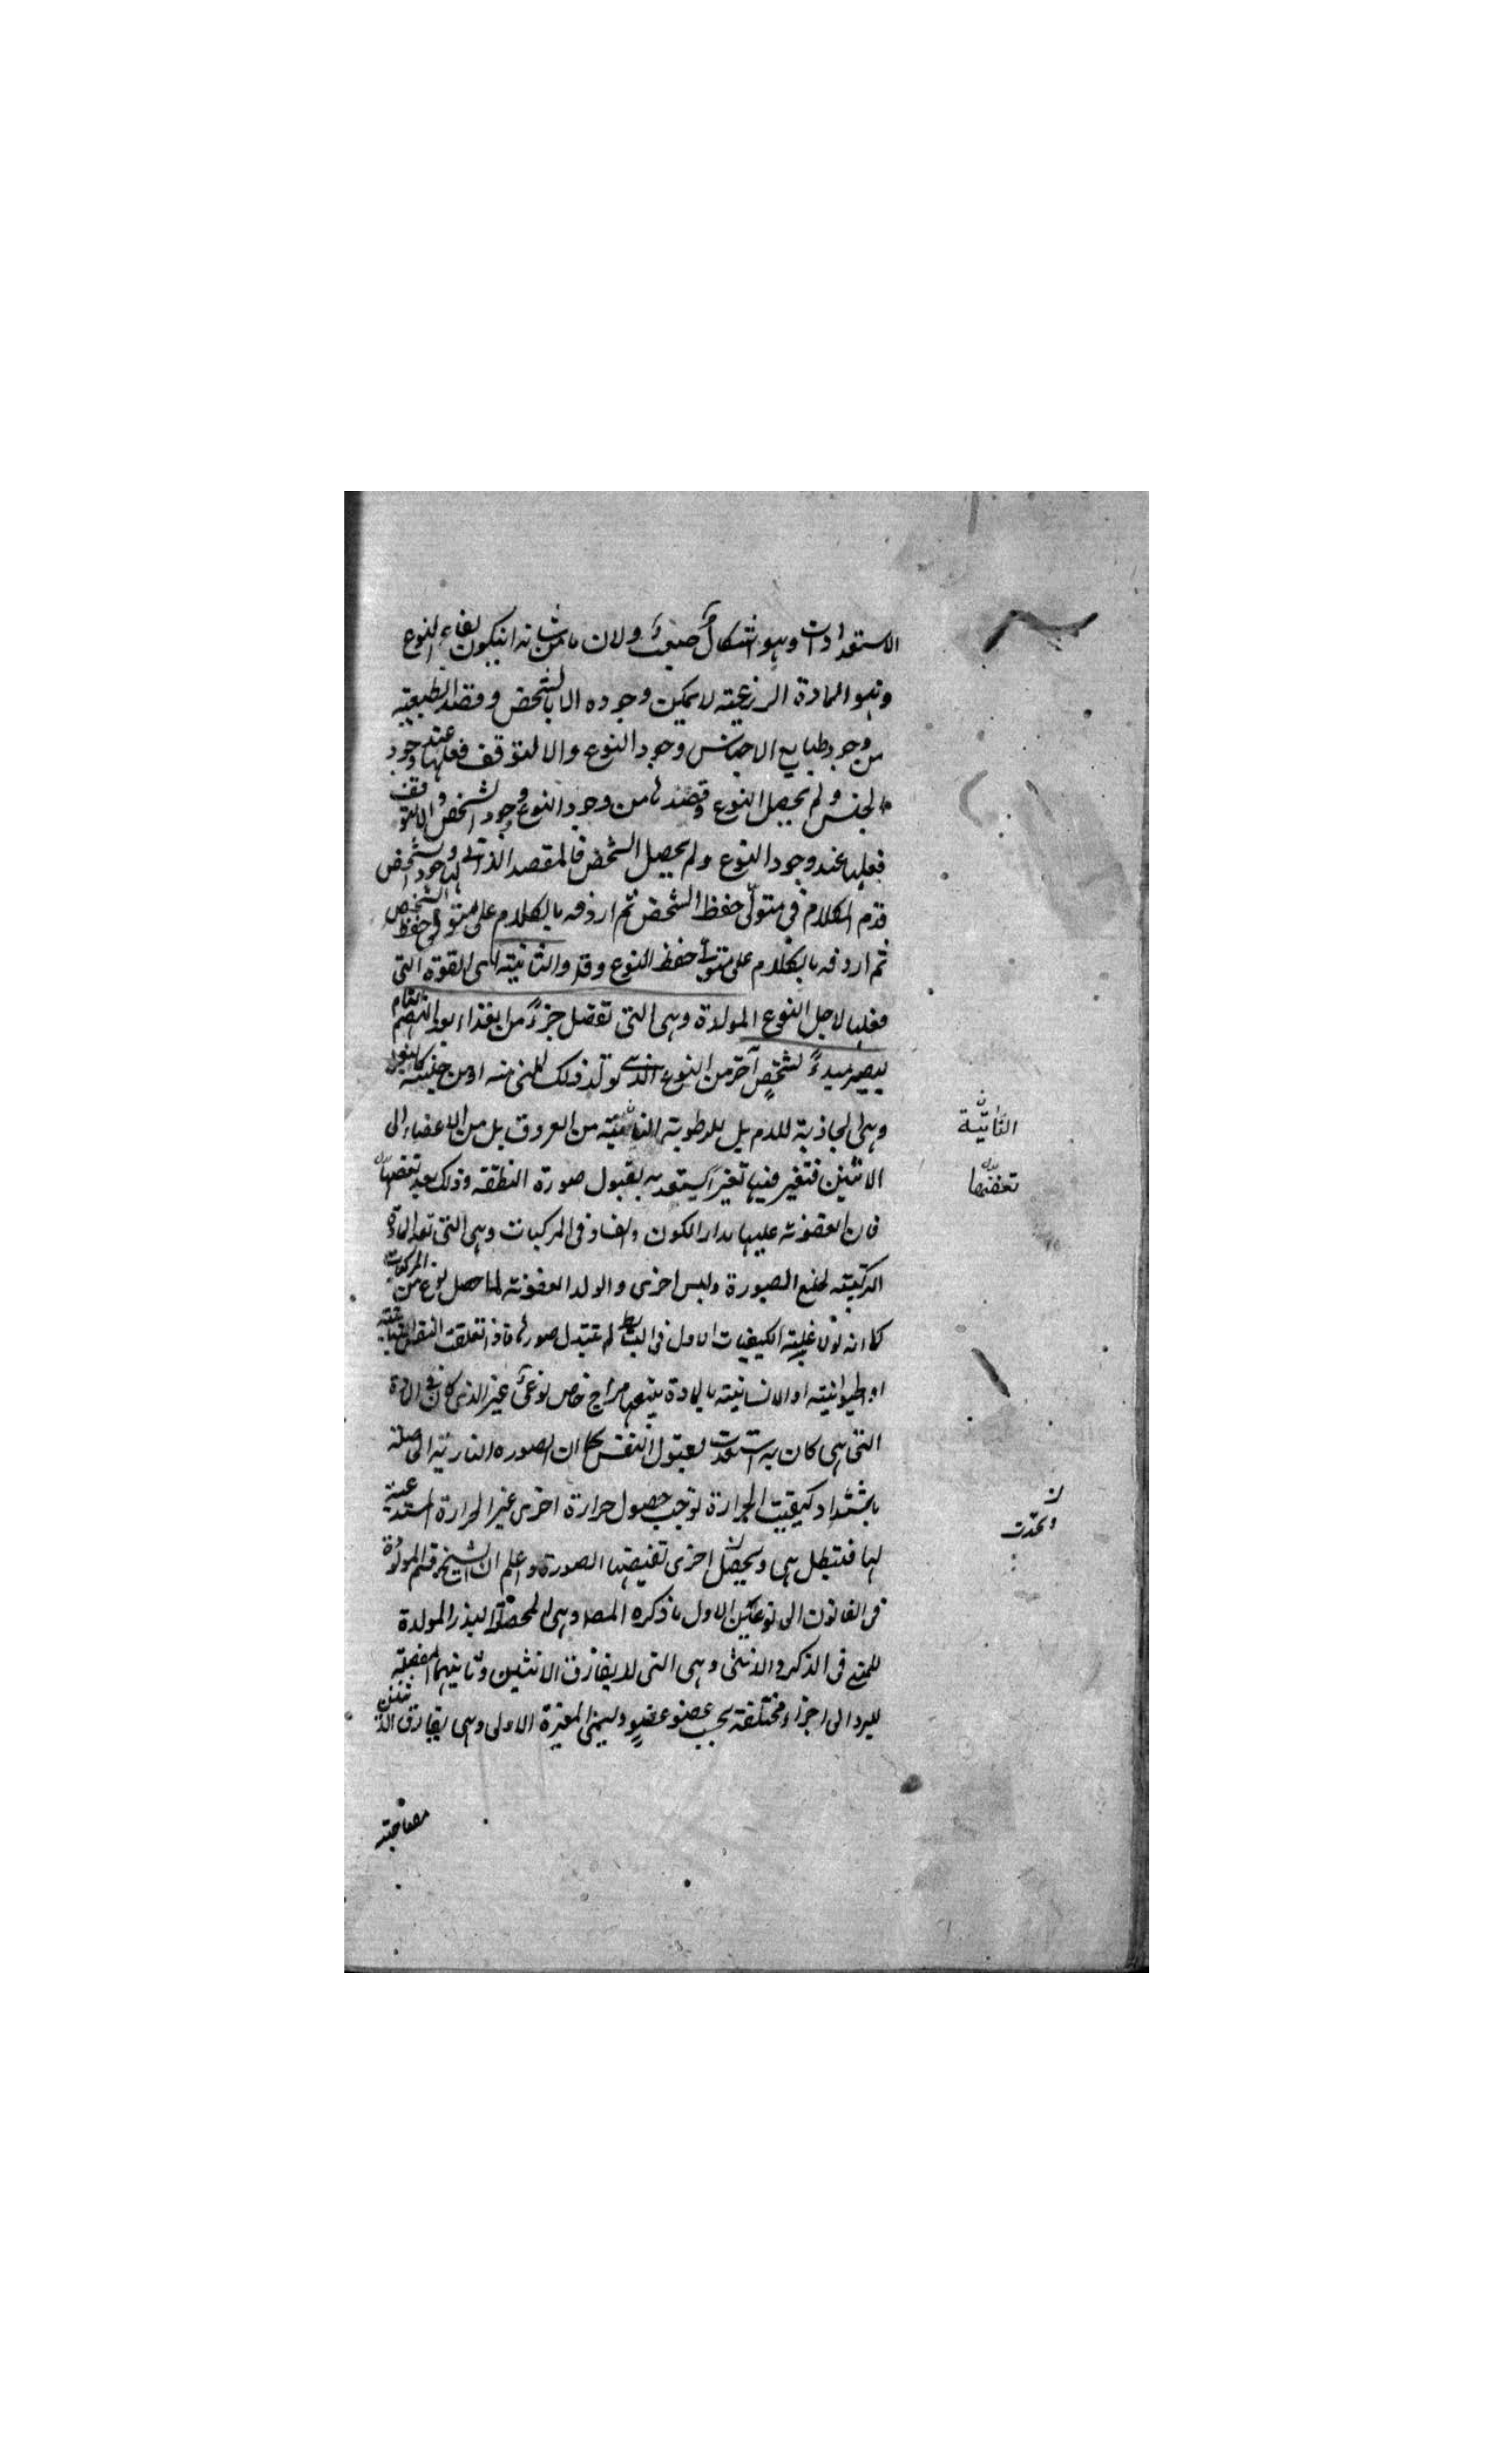 الاستعدادات وهو اشكال صعب ولان ما من شانه ان يكون لبقاء النوع
وهو المادة الزرعية لا يمكن وجوده الا بالشخص وقصد الطبيعة
من وجود طبايع الاجناس وجود النوع والا لتوقف فعلها عند وجود
الجنس ولم يحصل النوع وقصدها من وجود النوع وجود الشخص والا لتوقف
فعلها عند وجود النوع ولم يحصل الشخص فالمقصد الذاتي لها وجود شخص
قدم الكلام في متولي حفظ الشخص ثم اردفه بالكلام على متوفي حفظ الشخص
ثم اردفه بالكلام على متولي حفظ النوع وقد والثانية اى القوة التي
فعلها لاجل النوع المولدة وهي التي تفصل جزءً من الغذاء بعد الهضم التام
ليصير مبدءً لشخصٍ آخر من النوع الذي تولد ذلك المني منه او من جنسه
وهي الجاذبة للدم بل للرطوبة الثانية من العروق بل من الاعضاء الى
الانثيين فتغير فيها تغيراً يستعد به لقبول صورة النطفة وذلك بعد تعفنها
فان العفونة عليها مدار الكون والفساد في المركبات وهي التي تعد المادة
المركبة لخلع الصورة ولبس اخرى ولولا العفونة لما حصل نوع من المركبات
كما انه لولا غلبة الكيفيات الاول في البسائط لم تتبدل صورها فاذا تعلقت النفس النباتية
او الحيوانية او الانسانية بالمادة يتبعها مزاج خاص نوعي غير الذي كان في المادة
التي هي كان به استعدت لقبول النفس كما ان الصورة النارية الحاصلة
باشتداد كيفية الحرارة توجب حصول حرارة اخرى غير الحرارة المستدعية
لها فتبطل هي ويحصل اخرى تفيضها الصورة واعلم ان الشيخ قسم المولدة
في القانون الى نوعين الاول ما ذكره المصـ وهي المحصلة البذر المولدة
للمني في الذكر والانثى وهي التي لا يفارق الانثيين وثانيهما المفصلة
لليرد الى اجزاء مختلفة بحسب عضو عضوٍ وليمي المغيرة الاولى وهي يفارق الانثيين
الثانية
تعفنها
ويحدث
مصاحبته